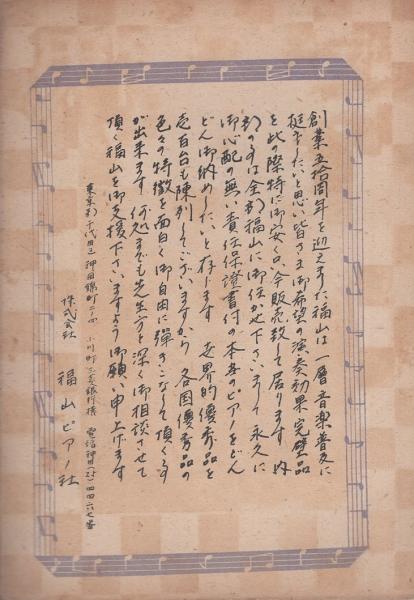 創業五拾周年を迎えました福山は一層音楽普及に
挺身したいと思い皆さま御希望の演奏効果完璧品
を此の際特に御安く今販売致して居ります
の方は全部福山に御任せ下さいまして永久に
御心配の無い責任保證書付の本当のピアノをどん
どん御納めしたいと存じます 世界的優秀品を
壱百台も陳列してございますから 各国優秀品の
色々の特徴を面白く御自由に弾きこなして頂く事
が出来ます 何処までも先生方と深く御相談させて
頂く福山を御支援下さいますよう御願い申上げます
東京都千代田区神田錦町二ノ四 小川町三菱銀行横 電話神田
株式会社
福山ピアノ社